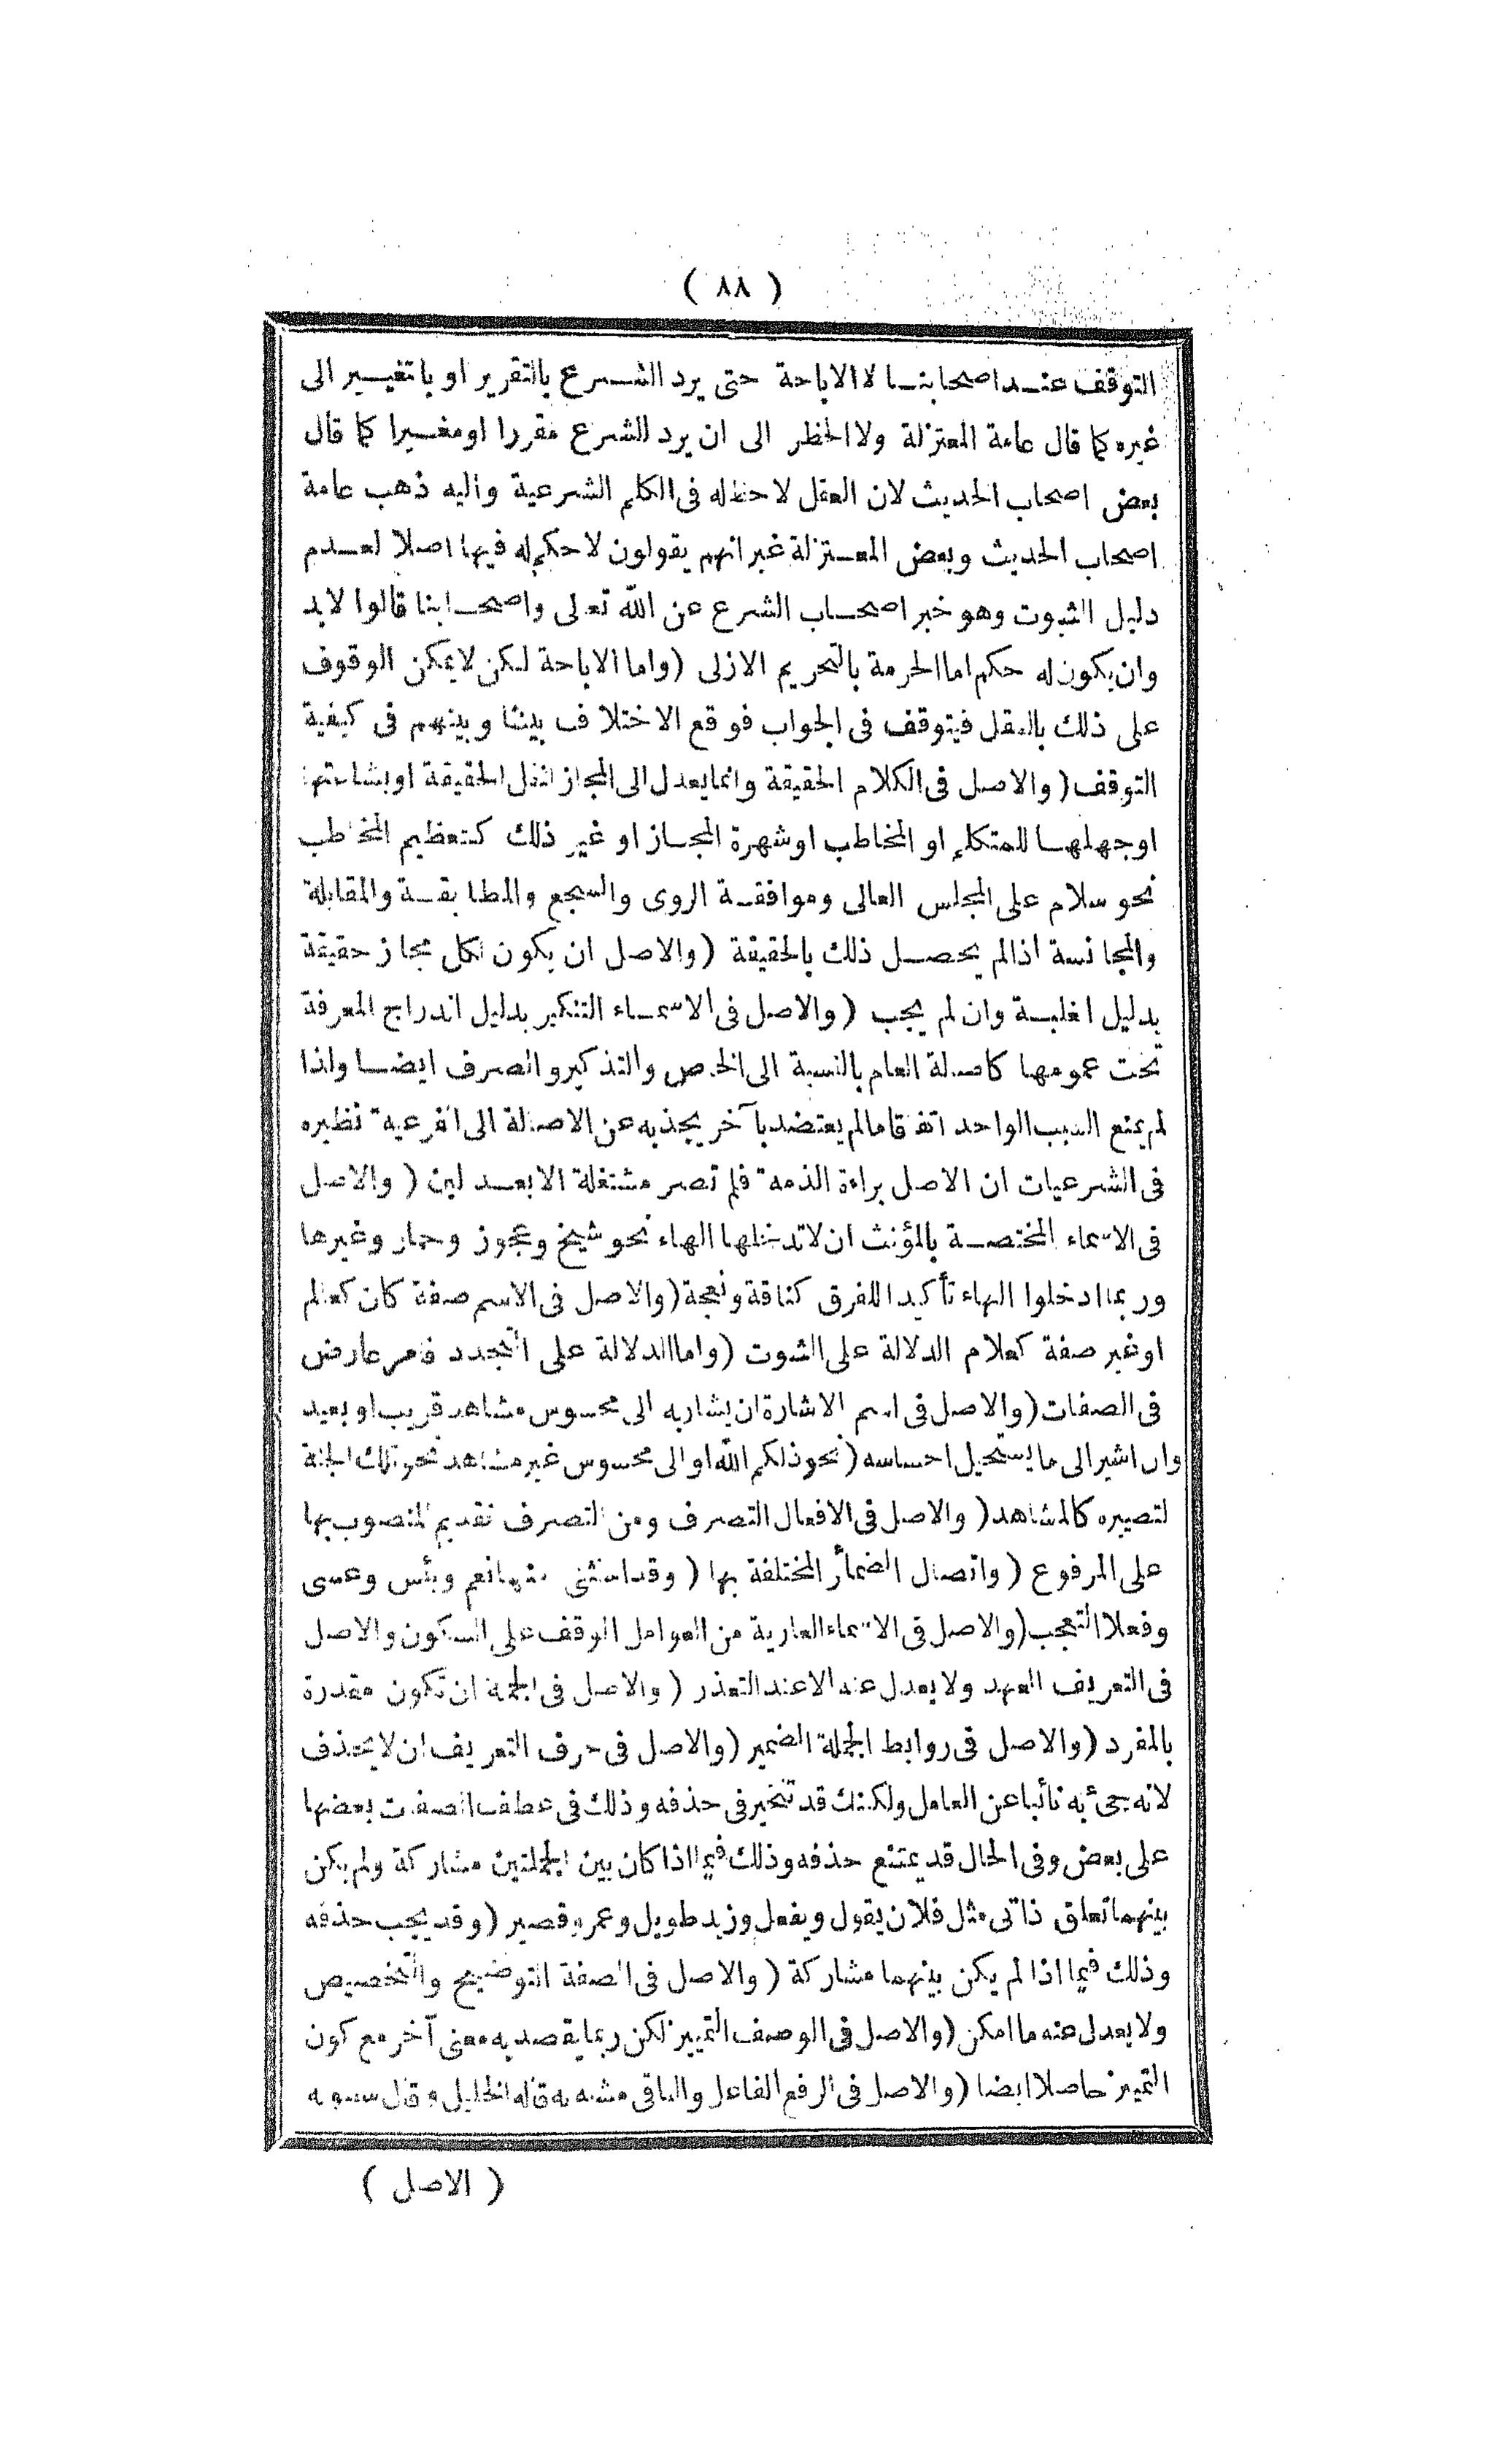 ( ٨٨ )
التوقف عند اصحابنا لا الاباحة حتى يرد الشرع بالتقرير او بالتغيير الى
غيره كما قال عامة المعتزلة ولا الحظر الى ان يرد الشرع مقررا او مغيرا كما قال
بعض اصحاب الحديث لان العقل لا حظ له فى الكلم الشرعية واليه ذهب عامة
اصحاب الحديث وبعض المعتزلة غير انهم يقولون لا حكم له فيها اصلا لعدم
دليل الثبوت وهو خبر اصحاب الشرع عن الله تعالى واصحابنا قالوا لابد
وان يكون له حكم اما الحرمة بالتحريم الازلى (واما الاباحة لكن لا يمكن الوقوف
على ذلك بالعقل فيتوقف فى الجواب فوقع الاختلاف بيننا وبينهم فى كيفية
التوقف (والاصل فى الكلام الحقيقة وانما يعدل الى المجاز لثقل الحقيقة او بشاعتها
او جهلها للمتكلم او المخاطب او شهرة المجاز او غير ذلك كتعظيم المخاطب
نحو سلام على المجلس العالى وموافقة الروى والسجع والمطابقة والمقابلة
والمجانسة اذا لم يحصل ذلك بالحقيقة (والاصل ان يكون لكل مجاز حقيقة
بدليل اغلبية وان لم يجب (والاصل فى الاسماء التنكير بدليل اندراج المعرفة
تحت عمومها كاصالة العام بالنسبة الى الخاص والتذكير والصرف ايضا ولذا
لم يمنع السبب الواحد اتفاقا مالم يعتضد بآخر يجذبه عن الاصالة الى الفرعية نظيره
فى الشرعيات ان الاصل براءة الذمة فلم تصر مشتغلة الا بعد لين (والاصل
فى الاسماء المختصة بالمؤنث ان لا تدخلها الهاء نحو شيخ وعجوز وحمار وغيرها
وربما ادخلوا الهاء تأكيدا للفرق كناقة ونعجة (والاصل فى الاسم صفة كان كعالم
او غير صفة كغلام الدلالة على الثبوت (واما الدلالة على التجدد فامر عارض
فى الصفات (والاصل فى اسم الاشارة ان يشار به الى محسوس مشاهد قريب او بعيد
وان اشير الى ما يستحيل احساسه (نحو ذلكم الله او الى محسوس غير مشاهد نحو تلك الجنة
لتصييره كالمشاهد (والاصل فى الافعال التصرف ومن التصرف تقديم المنصوب بها
على المرفوع (واتصال الضمائر المختلفة بها (وقد استثنى منها نعم وبئس وعسى
وفعلا التعجب (والاصل فى الاسماء العارية من العوامل الوقف على السكون والاصل
فى التعريف العهد ولا يعدل عنه الا عند التعذر (والاصل فى الجملة ان تكون مقدرة
بالمفرد (والاصل فى روابط الجملة الضمير (والاصل فى حرف التعريف ان لا يحذف
لانه جئ به نائبا عن العامل ولكنك قد تتخير فى حذفه وذلك فى عطف الصفات بعضها
على بعض وفى الحال قد يمتنع حذفه وذلك فيما اذا كان بين الجملتين مشاركة ولم يكن
بينهما تعلق ذاتى مثل فلان يقول ويفعل وزيد طويل وعمرو قصير (وقد يجب حذفه
وذلك فيما اذا لم يكن بينهما مشاركة (والاصل فى الصفة التوضيح والتخصيص
ولا يعدل عنه ما امكن (والاصل فى الوصف التمييز لكن ربما يقصد به معنى آخر مع كون
التمييز حاصلا ايضا (والاصل فى الرفع الفاعل والباقى مشبه به قاله الخليل وقال سيبويه
( الاصل )